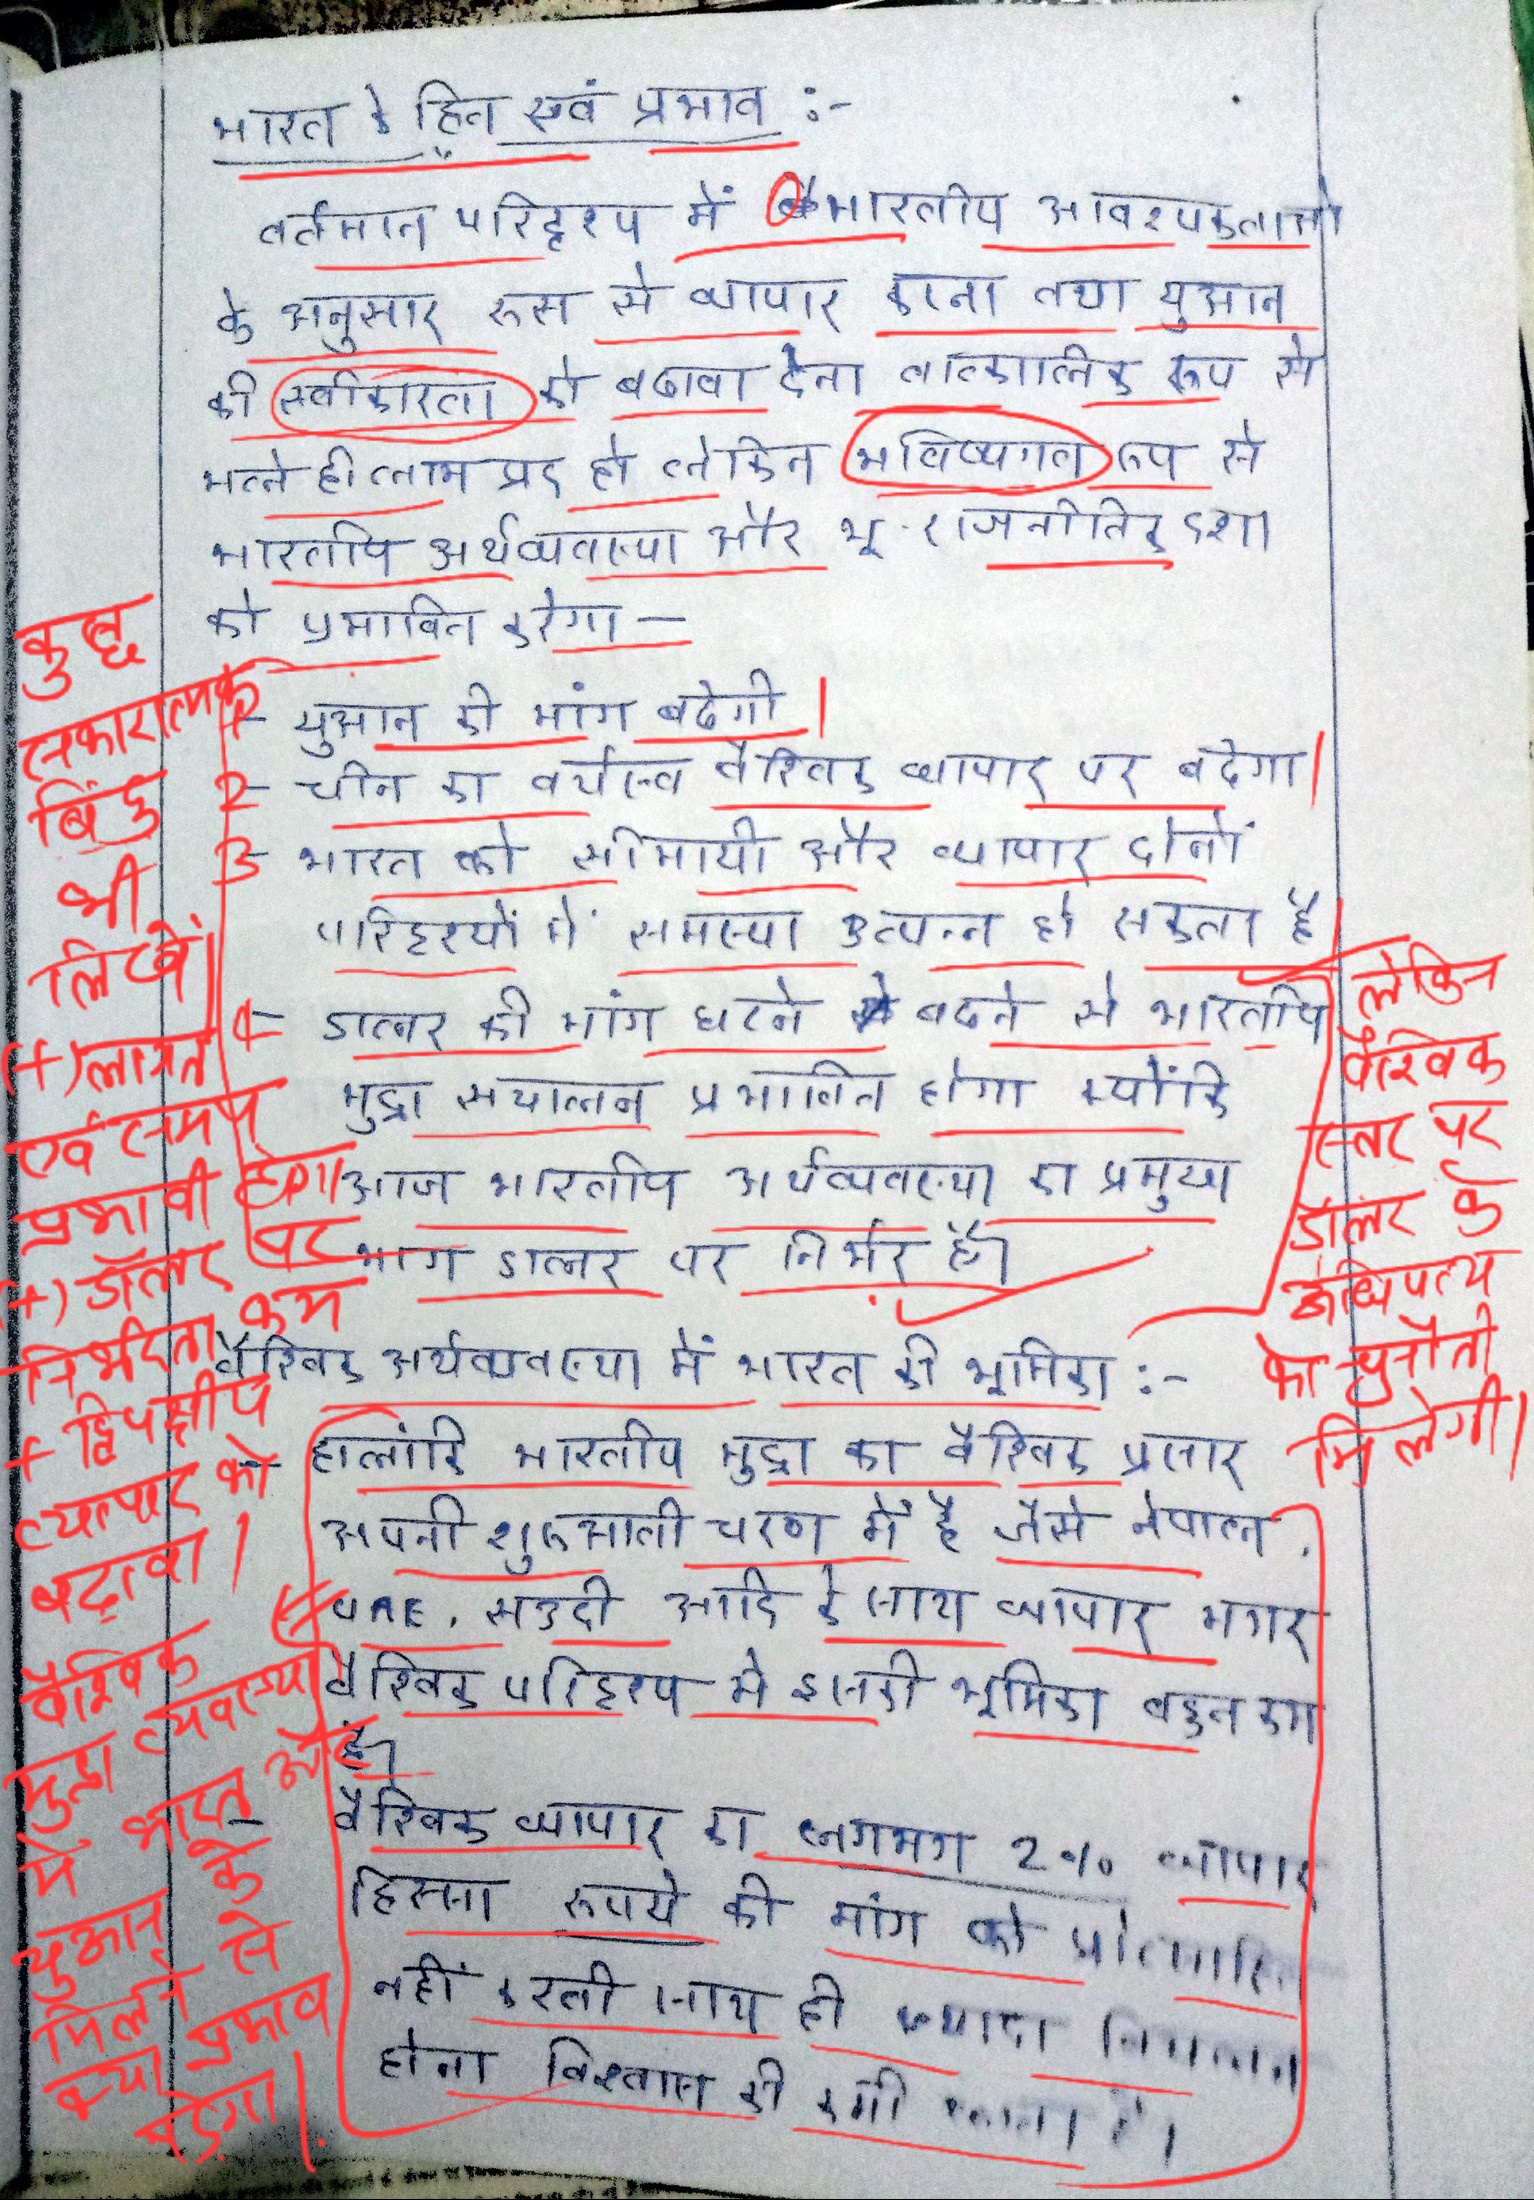 भारत के हित एवं प्रभाव :-
वर्तमान परिदृश्य में भारतीय आवश्यकताओं
के अनुसार रूस से व्यापार करना तथा युआन
की स्वीकारता को बढावा देना तात्कालिक रूप से
भले ही लाभ प्रद हो लेकिन भविष्यगत रूप से
भारतीय अर्थव्यवस्था और भू-राजनीतिक दशा
को प्रभावित करेगा —
1- युआन की मांग बढेगी।
2- चीन का वर्चस्व वैश्विक व्यापार पर बढेगा।
3- भारत को सीमायी और व्यापार दोनों
परिदृश्यों में समस्या उत्पन्न हो सकता है
4- डालर की मांग घटने बढने से भारतीय
मुद्रा सचालन प्रभावित होगा क्योंकि
आज भारतीय अर्थव्यवस्था का प्रमुख
भाग डालर पर निर्भर है।
वैश्विक अर्थव्यवस्था में भारत की भूमिका :-
- हालांकि भारतीय मुद्रा का वैश्विक प्रसार
अपनी शुरुआती चरण में है जैसे नेपाल,
UAE, सउदी आदि के साथ व्यापार मगर
वैश्विक परिदृश्य में इसकी भूमिका बहुत कम
है।
- वैश्विक व्यापार का लगभग 2% व्यापार
हिस्सा रूपये की मांग को
नहीं करती साथ ही ज्यादा
होना विश्वास की कमी है।
कुछ
सकारात्मक
बिंदु
भी
लिखें।
(+) लागत
एवं समय
प्रभावी होगा
(+) डॉलर पर
निर्भरता कम
+ द्विपक्षीय
व्यापार को
बढ़ावा।
वैश्विक
मुद्रा व्यवस्था
में भारत और
युआन के
मिलने से
क्या प्रभाव
पड़ेगा।
लेकिन
वैश्विक
स्तर पर
डॉलर के
अधिपत्य
को चुनौती
मिलेगी।